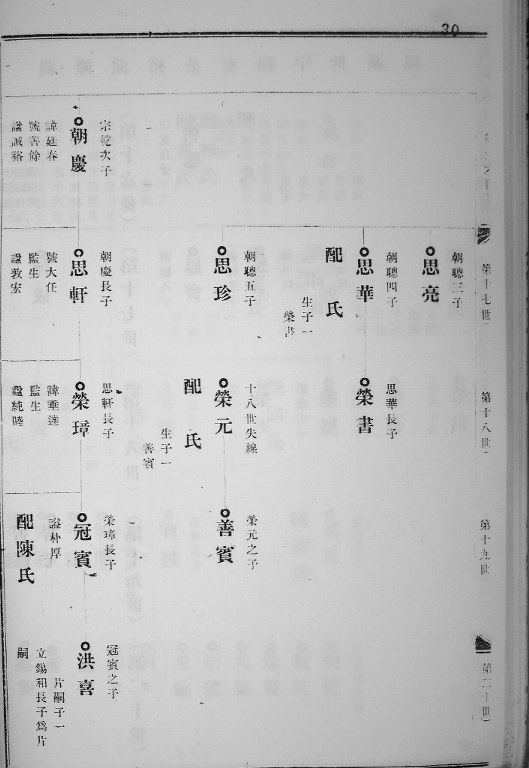 30
第十七世
第十八世
第十九世
第二十世
朝聰三子
思亮
朝聰四子
思華
配氏
生子一
榮書
思華長子
榮書
朝聰五子
思珍
十八世失線
榮元
配氏
生子一
善賓
榮元之子
善賓
宗乾次子
朝慶
諱延春
號善餘
諡誠裕
朝慶長子
思軒
號大任
監生
諡敦宏
思軒長子
榮璋
諱垂達
監生
諡純睦
榮璋長子
冠賓
諡朴厚
配陳氏
冠賓之子
洪喜
片嗣子一
立錫和長子爲片
嗣